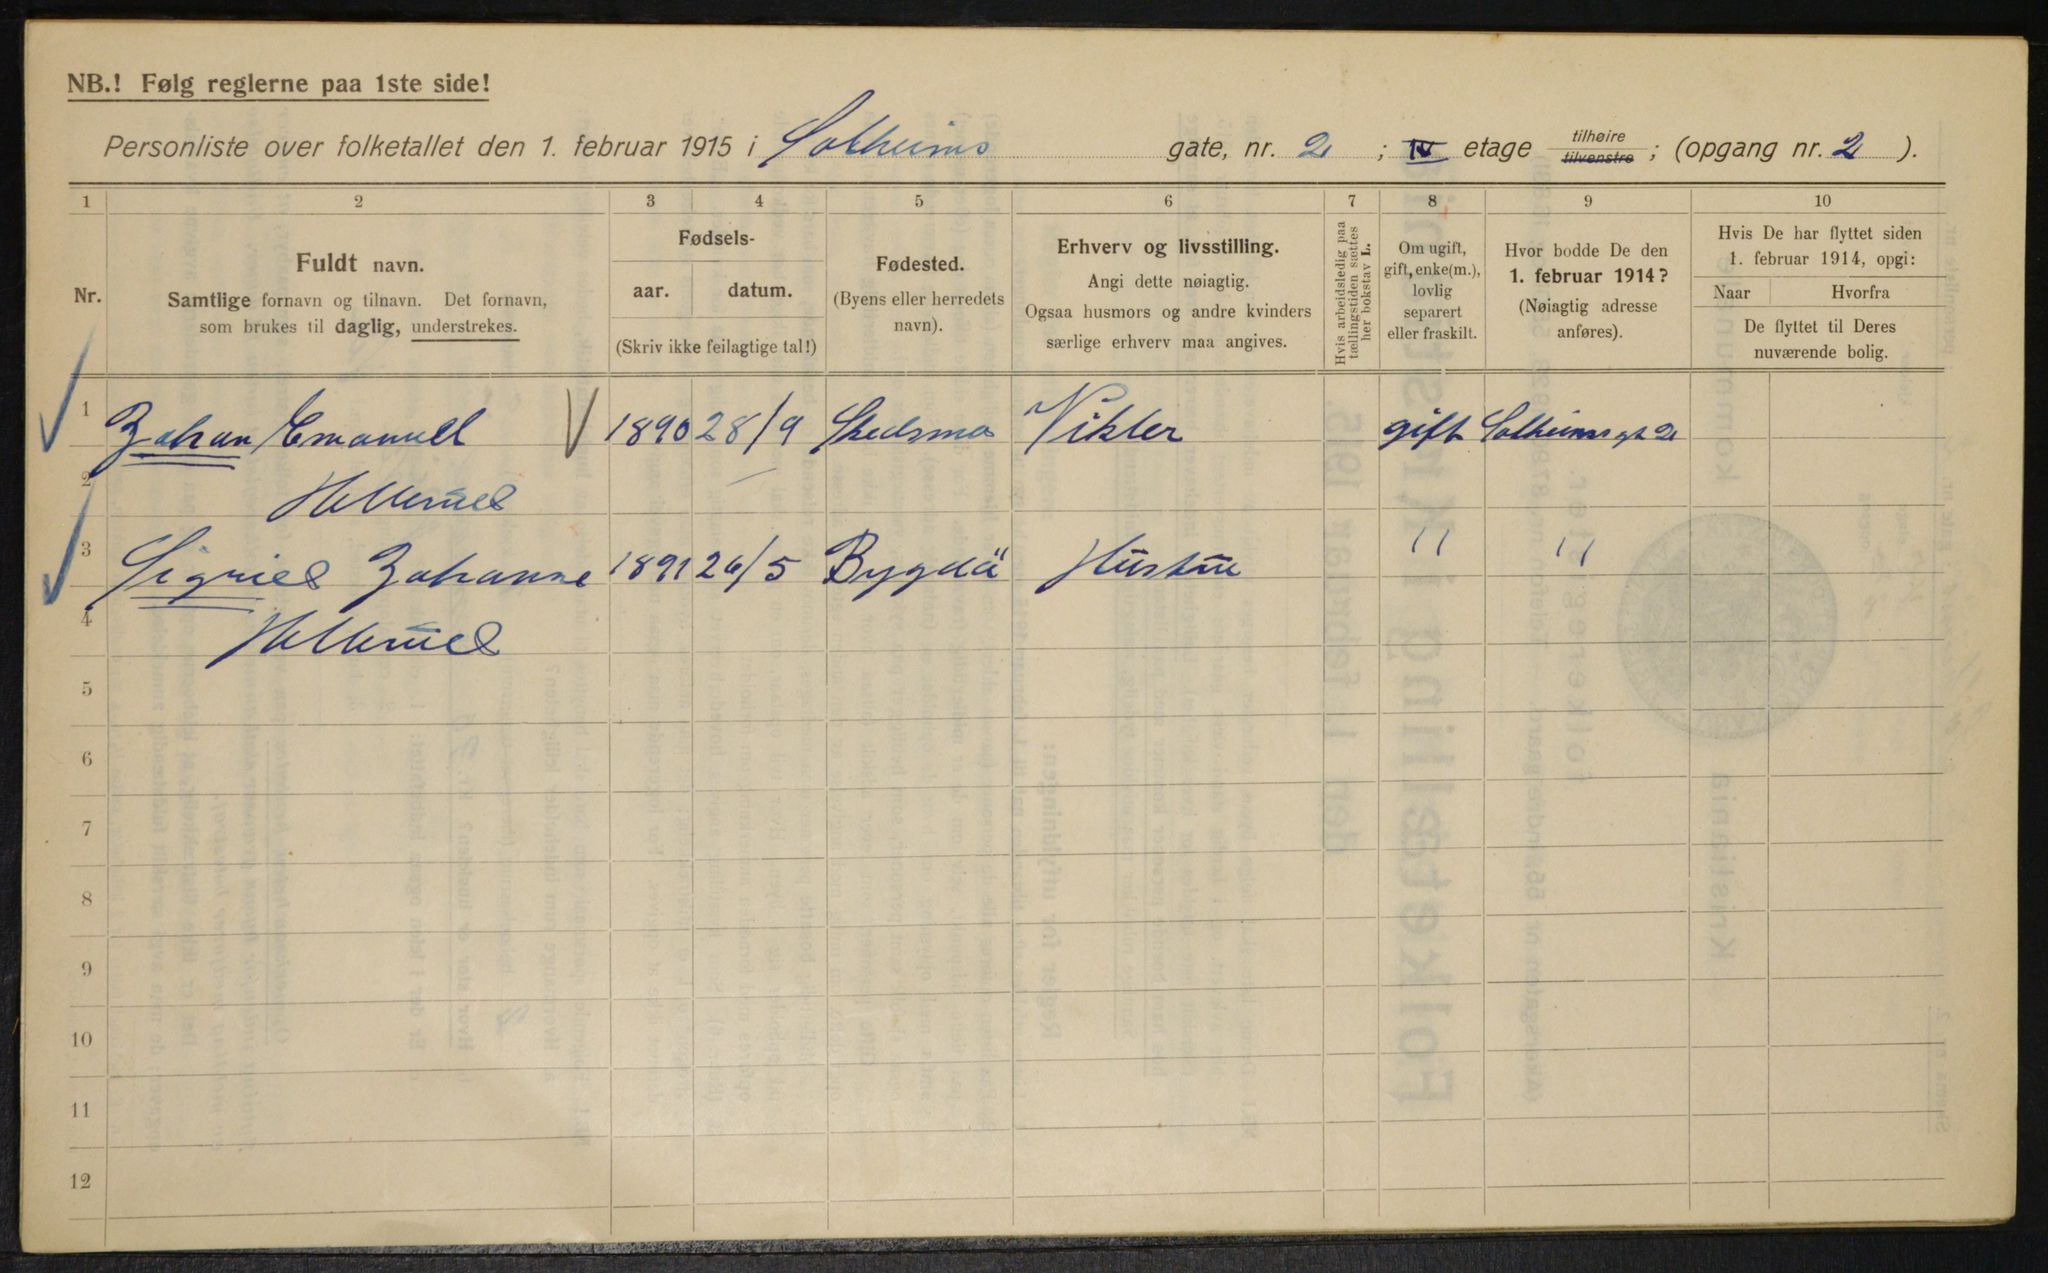 NB.! Følg reglerne paa 1ste side!
Personliste over folketallet den 1. februar 1915 i Solheims gate, nr. 2 ; IV etage tilhøire tilvenstre ; (opgang nr. 2 ).
1 2 3 4 5 6 7 8 9 10
Nr.
Fuldt navn.
Samtlige fornavn og tilnavn. Det fornavn,
som brukes til daglig, understrekes.
Fødsels-
aar. datum.
(Skriv ikke feilagtige tal!)
Fødested.
(Byens eller herredets
navn).
Erhverv og livsstilling.
Angi dette nøiagtig.
Ogsaa husmors og andre kvinders
særlige erhverv maa angives.
Hvis arbeidsledig paa
tællingstiden sættes
her bokstav L.
Om ugift,
gift, enke(m.),
lovlig
separert
eller fraskilt.
Hvor bodde De den
1. februar 1914?
(Nøiagtig adresse
anføres).
Hvis De har flyttet siden
1. februar 1914, opgi:
Naar Hvorfra
De flyttet til Deres
nuværende bolig.
1 Johan Emanuel 1890 28/9 Skedsmo Vikler gift Solheimsgt 2
2 Hellerud
3 Sigried Johanne 1891 26/5 Bygdö Hustru " "
4 Hellerud
5
6
7
8
9
10
11
12